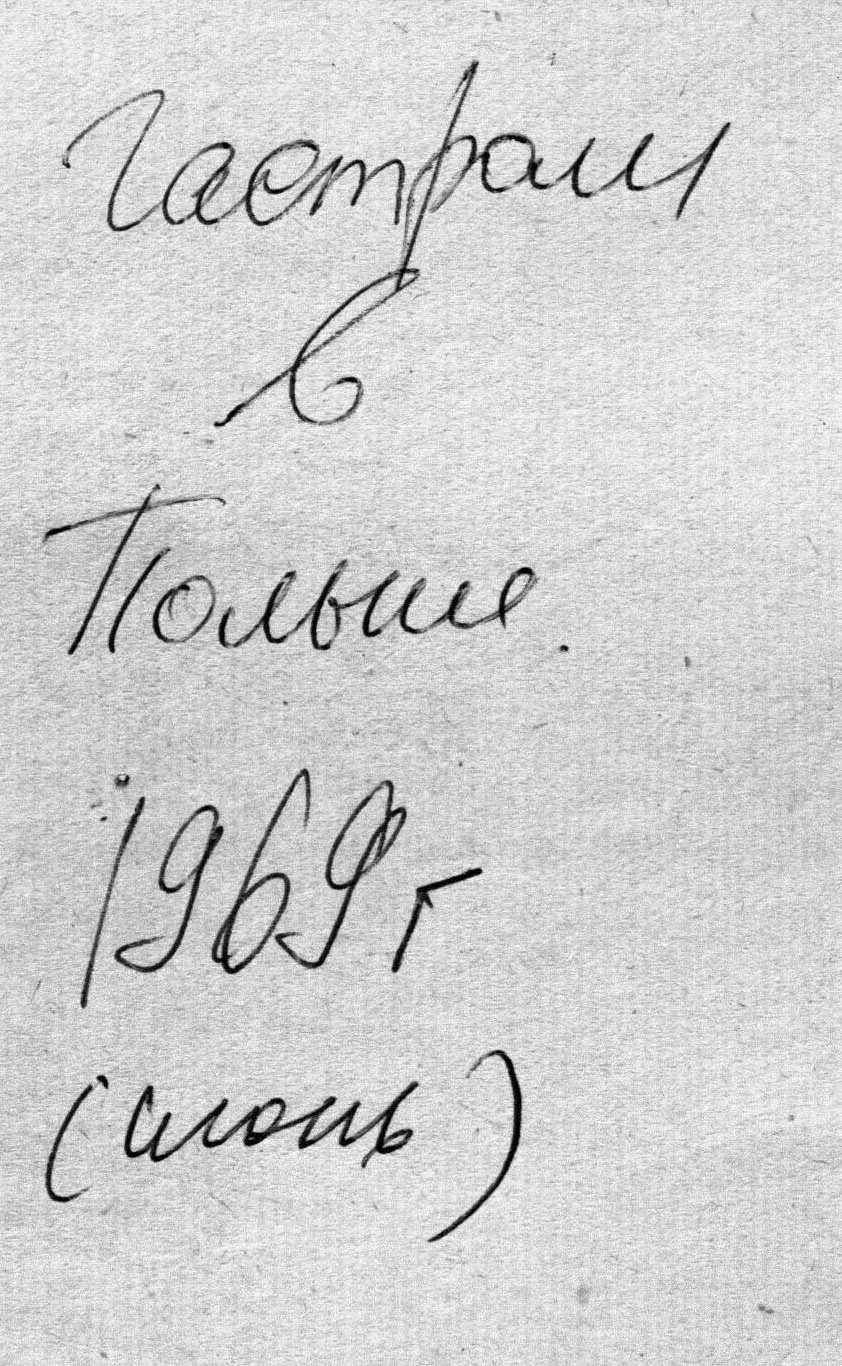 Гастроли
в
Польше.
1969 г
(июнь)